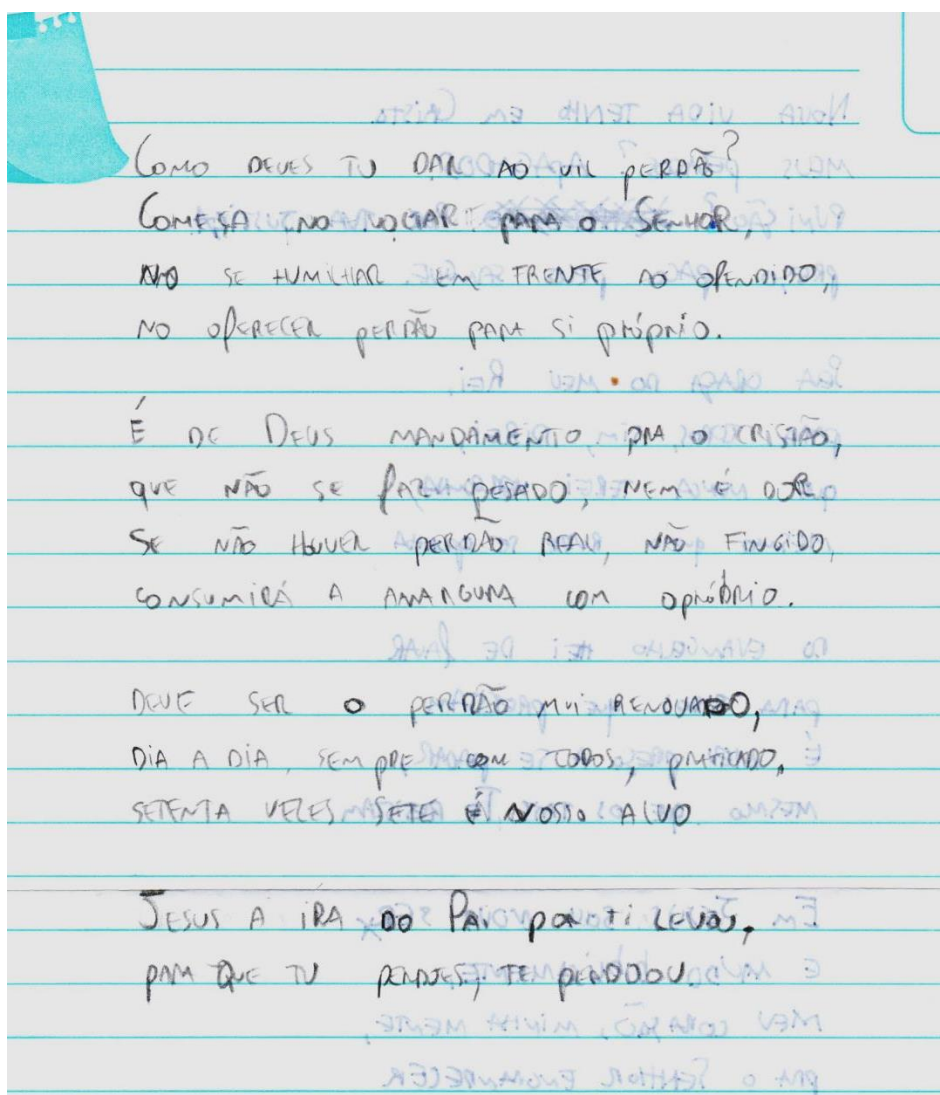 Como deves tu dar ao vil perdão?
Começa no voltar para o Senhor,
no se humilhar em frente ao ofendido,
no oferecer perdão para si próprio.
É de Deus mandamento, pra o cristão,
que não se faz pesado, nem é dor
Se não houver perdão real, não fingido,
consumirá a amargura com opróbrio.
Deve ser o perdão mui renovado,
dia a dia, sempre com todos, praticado,
setenta vezes sete é nosso alvo
Jesus a ira do Pai por ti levou,
para que tu perdoes, te perdoou.